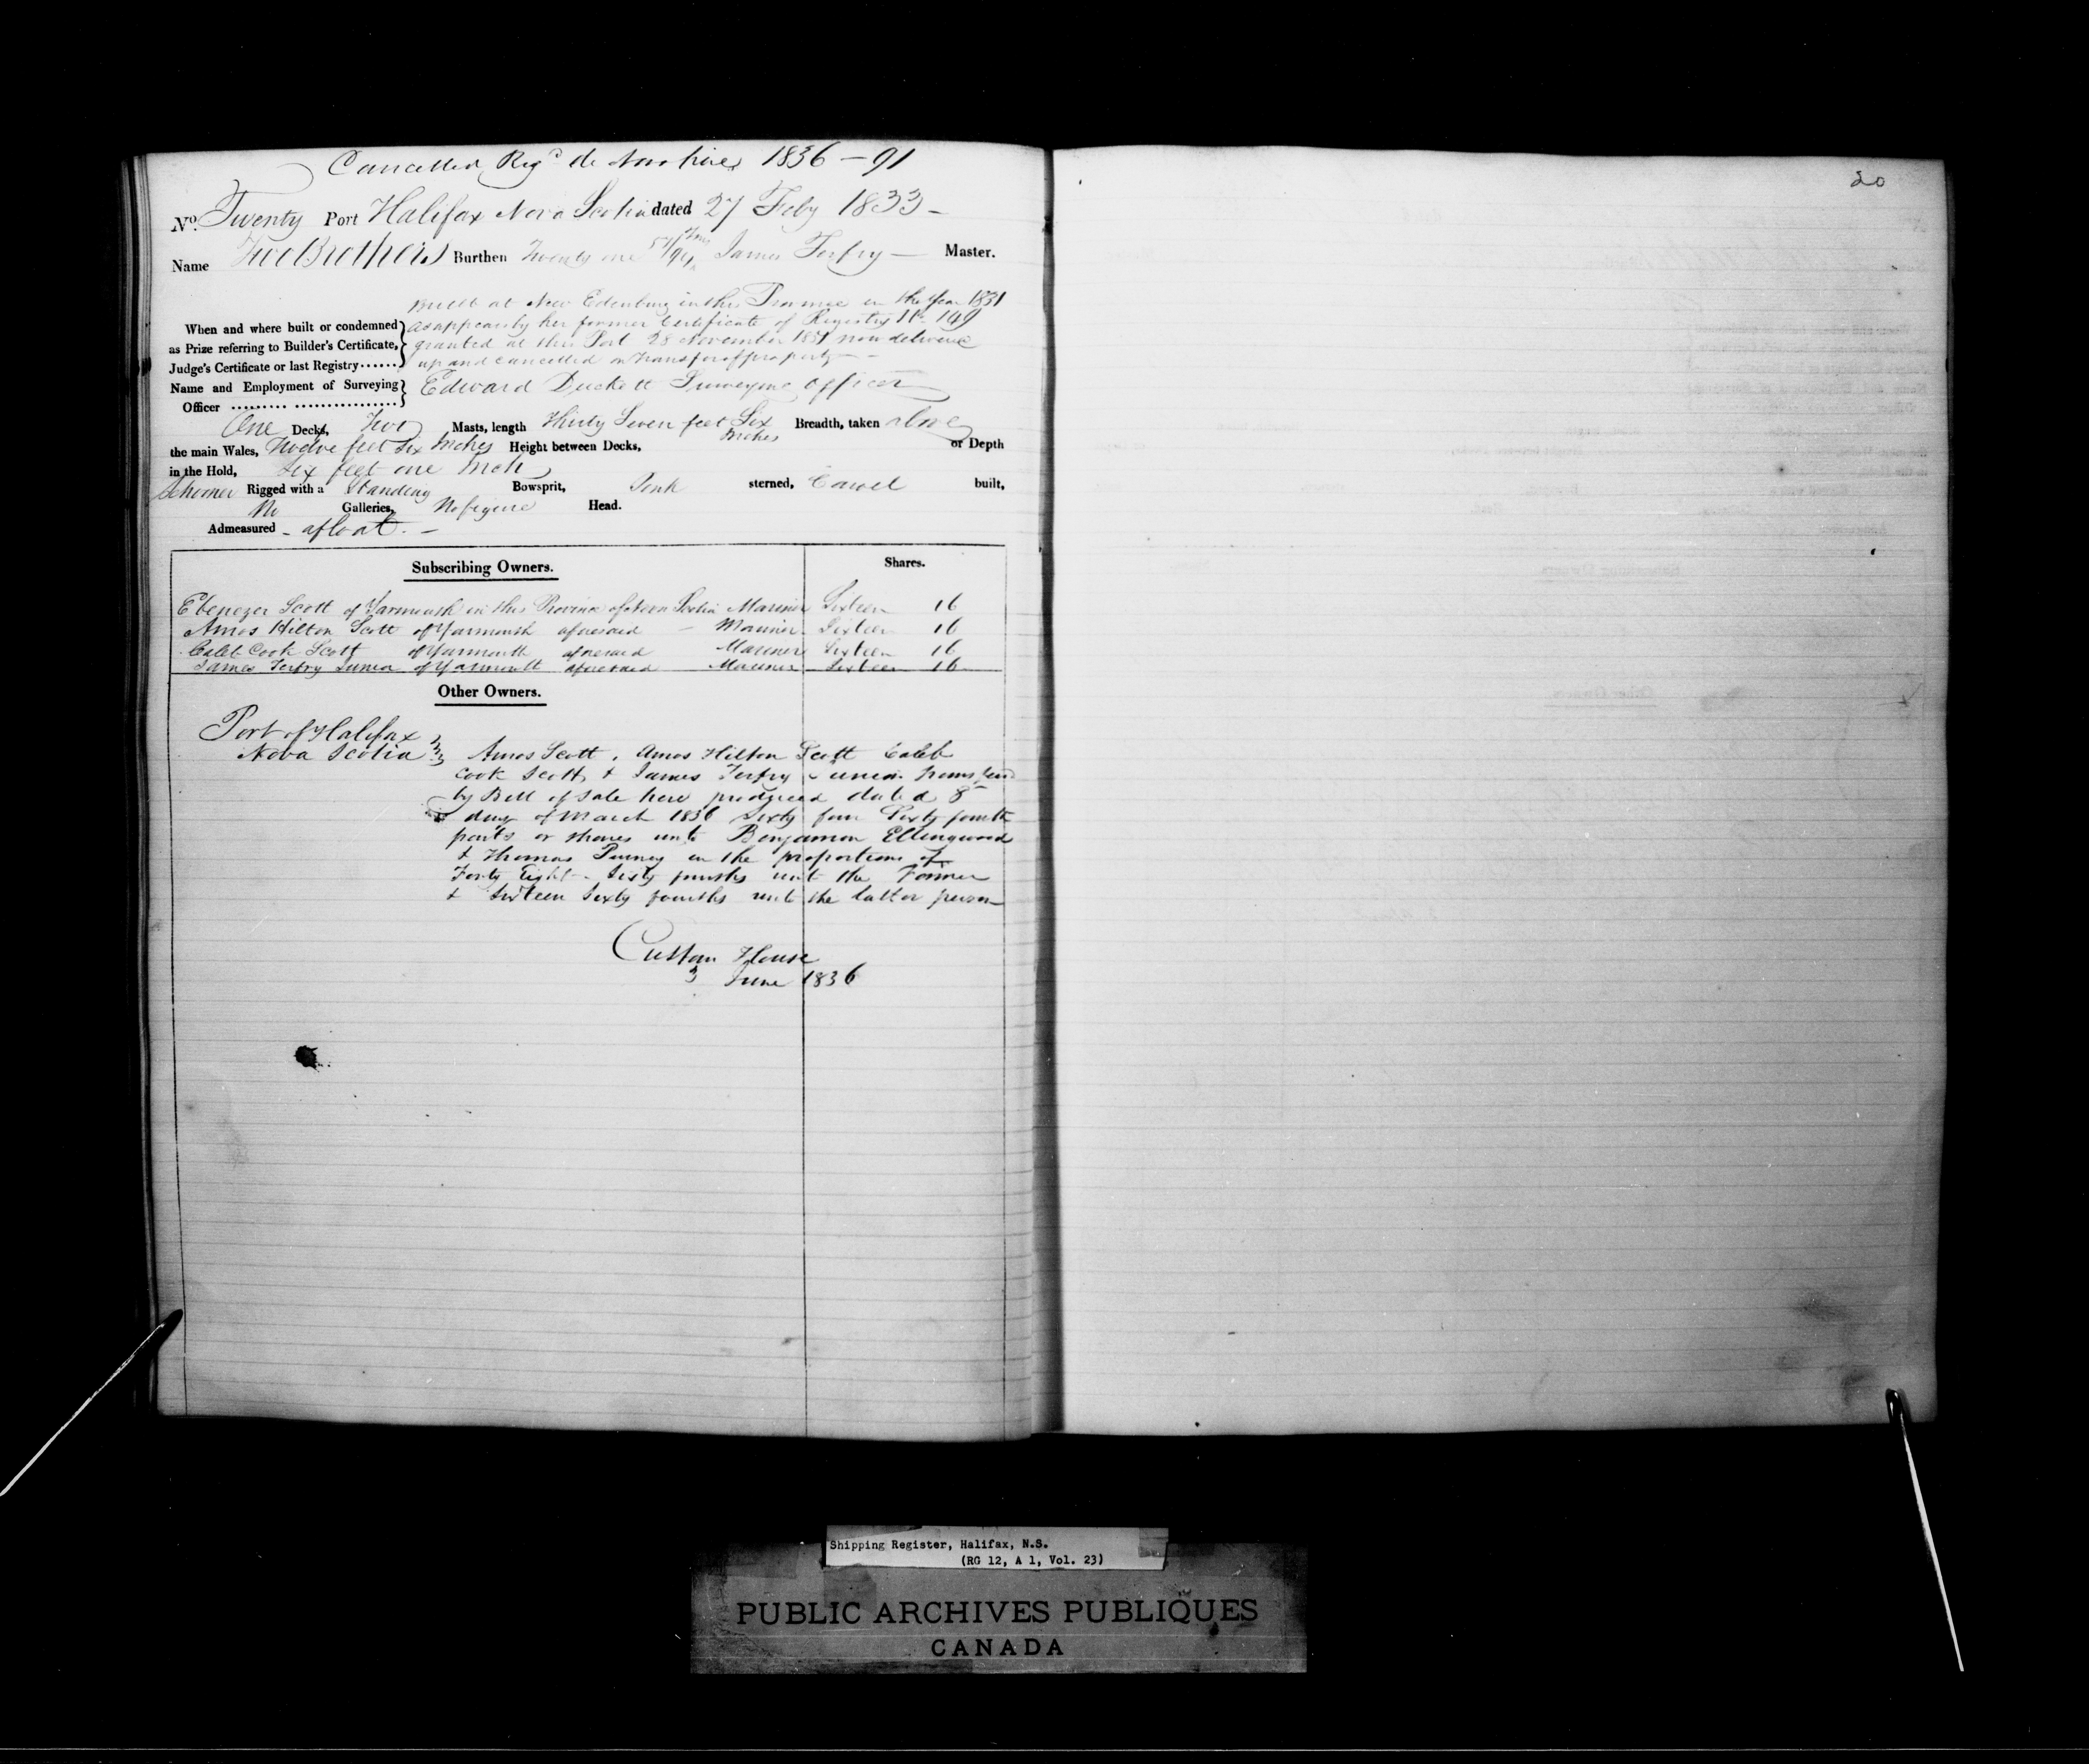 Cancelled Reg^d de Novo here 1836 — 91
20
No. Twenty Port Halifax Nova Scotia dated 27 Feby 1833 –
Name Two Brothers Burthen Twenty one 57/94 Tons James Terfry — Master.
Built at New Edenburg in this Province in the Year 1831
When and where built or condemned as appears by her former Certificate of Registry No 149
as Prize referring to Builder's Certificate, granted at this Port 28 November 1831 now delivered
Judge's Certificate or last Registry...... up and cancelled on transfer of property –
Name and Employment of Surveying Edward Duckett Surveying officer
Officer
One Decks, Two Masts, length Thirty Seven feet Six Inches Breadth, taken above
the main Wales, Twelve feet Six Inches Height between Decks, or Depth
in the Hold, Six feet one Inch
Schooner Rigged with a Standing Bowsprit, Pink sterned, Carvel built,
No Galleries, No figure Head.
Admeasured – afloat. –
Subscribing Owners. Shares.
Ebenezer Scott of Yarmouth in this Province of Nova Scotia Mariner Sixteen 16
Amos Hilton Scott of Yarmouth aforesaid – Mariner Sixteen 16
Caleb Cook Scott of Yarmouth aforesaid Mariner Sixteen 16
James Terfry Junior of Yarmouth aforesaid Mariner Sixteen 16
Other Owners.
Port of Halifax
Nova Scotia Amos Scott, Amos Hilton Scott Caleb
Cook Scott, & James Terfry Junior transferred
by Bill of Sale here produced dated 8th
day of March 1836 Sixty four Sixty fourth
parts or shares unto Benjamin Ellingwood
& Thomas Purney in the proportions of
Forty Eight – Sixty fourths unto the Former
& Sixteen Sixty fourths unto the latter person
Custom House
3 June 1836
Shipping Register, Halifax, N.S.
(RG 12, A 1, Vol. 23)
PUBLIC ARCHIVES PUBLIQUES
CANADA